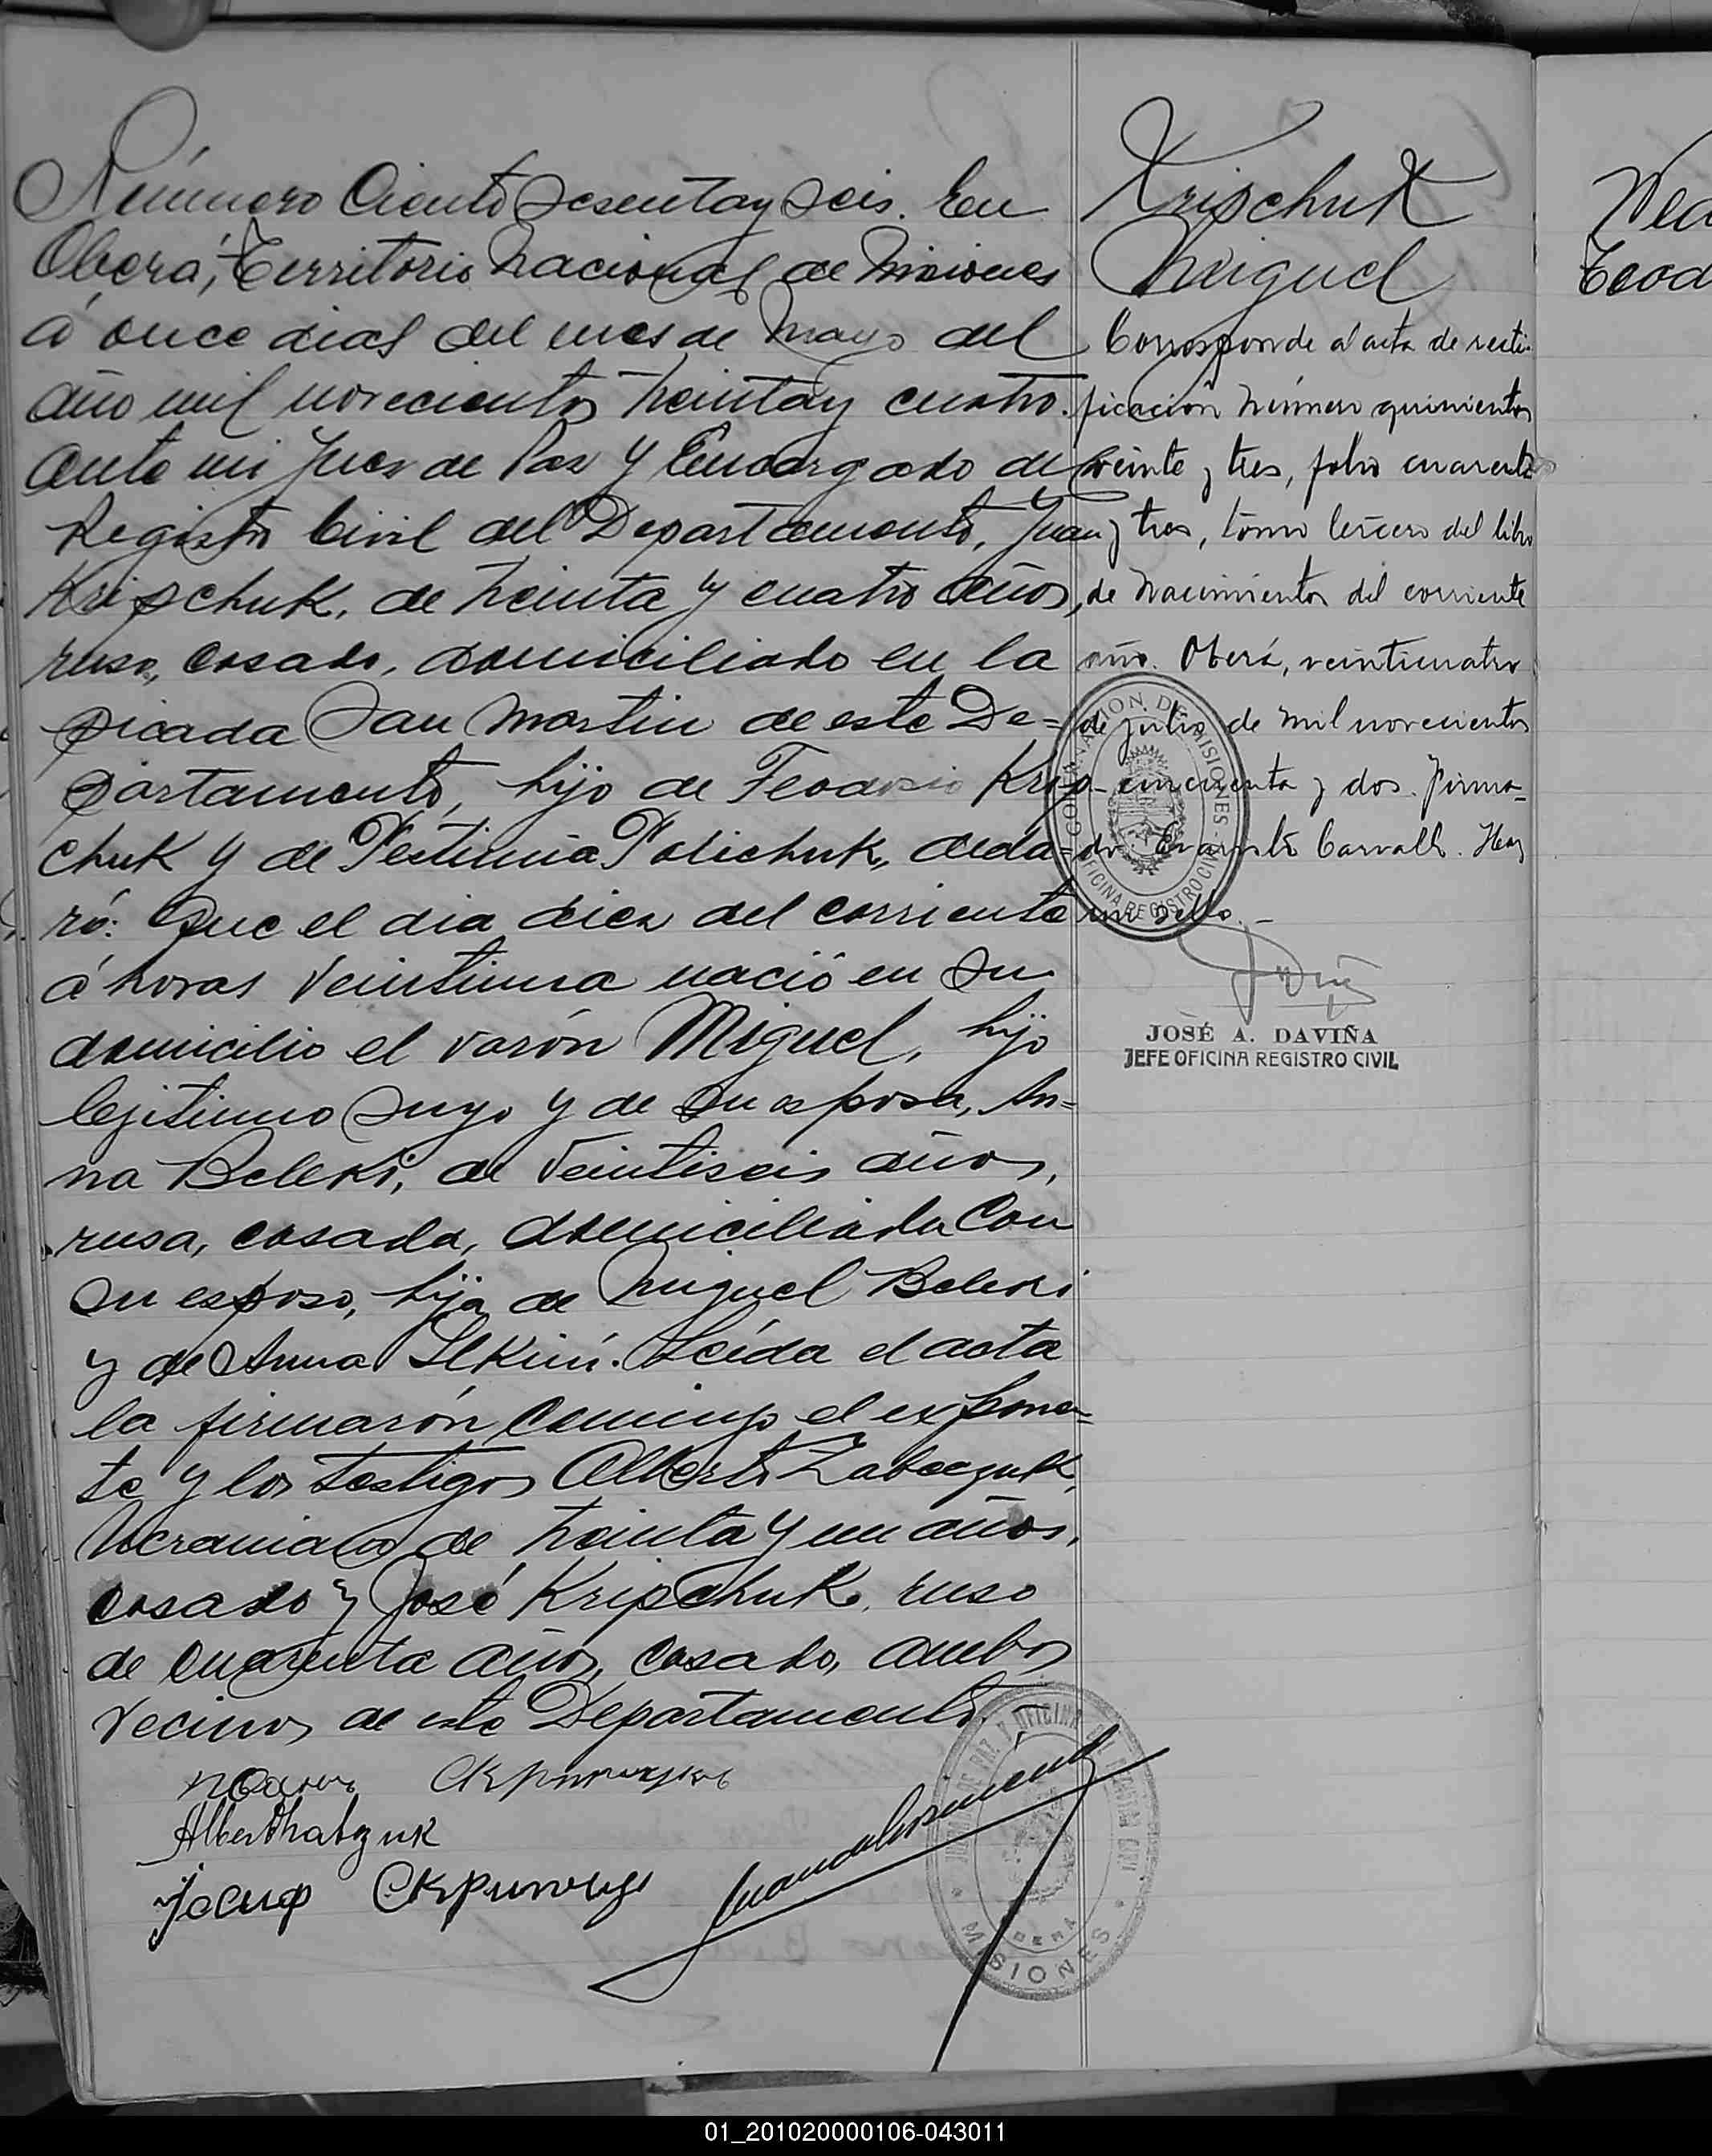 Número Ciento Sesenta y Seis. En
Oberá, Territorio Nacional de Misiones
á once dias del mes de Mayo del
año mil novecientos treinta y cuatro.
Ante mi Juez de Paz y Encargado del
Registro Civil del Departamento, Juan
Kripschuk, de treinta y cuatro años,
ruso, casado, domiciliado en la
picada San Martin de este De=
partamento, hijo de Teodosio Krip-
chuk y de Polichuk, decla=
ró: Que el dia diez del corriente
á horas Veintiuna nació en su
domicilio el varón Miguel, hijo
legitimo suyo y de su esposa, An=
na Beleki, de Veintiseis años,
rusa, casada, domiciliada con
su esposo, hija de Miguel Beleki
y de Anna. Leída el acta
la firmarón conmigo el exponen=
te y los testigos Alberto Zabczuk,
Ucraniano de treinta y un años,
casado y José Kripchuk, ruso
de cuarenta años, casado, ambos
vecinos de este Departamento.
Скрипчук
Krischuk
Miguel
Corresponde al acta de recti-
ficación número quinientos
veinte y tres, folio cuarenta
y tres, tomo tercero del libro
de Nacimientos del corriente
año. Oberá, veinticuatro
de julio de mil novecientos
cincuenta y dos. Firma-
do Evaristo Carvallo. Hay
un sello.-
GOBERNACION DE MISIONES
OFICINA REGISTRO CIVIL
JOSÉ A. DAVIÑA
JEFE OFICINA REGISTRO CIVIL
JUZGADO DE PAZ Y OFICINA DEL REGISTRO CIVIL
OBERA
MISIONES
01_201020000106-043011